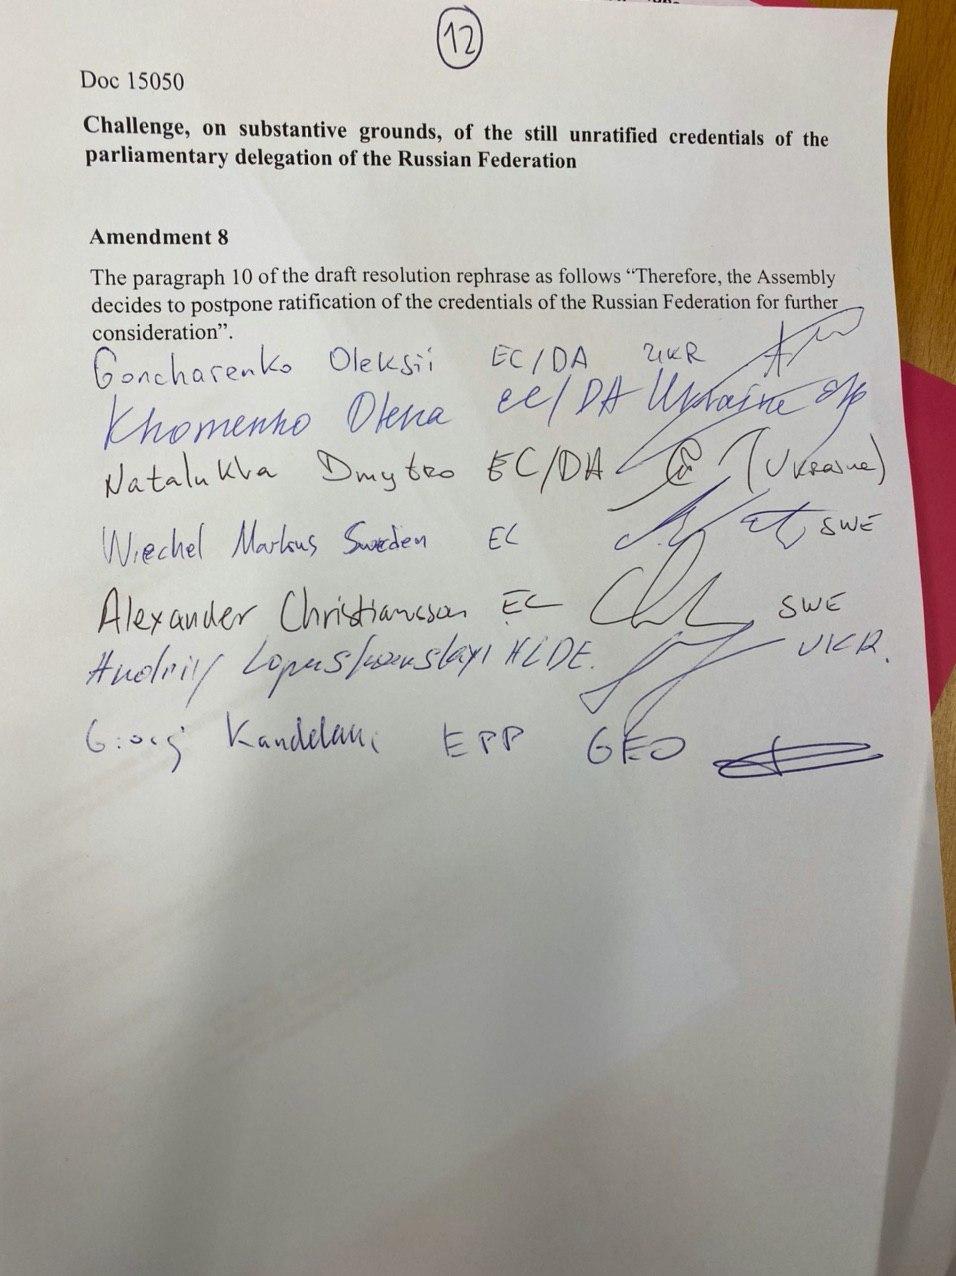 12
Doc 15050
Challenge, on substantive grounds, of the still unratified credentials of the
parliamentary delegation of the Russian Federation
Amendment 8
The paragraph 10 of the draft resolution rephrase as follows “Therefore, the Assembly
decides to postpone ratification of the credentials of the Russian Federation for further
consideration”.
Goncharenko Oleksii EC/DA UKR
Khomenko Olena EC/DA Ukraine
Natalukha Dmytro EC/DA (Ukraine)
Wiechel Markus Sweden EC SWE
Alexander Christiansson EC SWE
Andriiy ALDE. UKR.
Giorgi Kandelaki EPP GEO